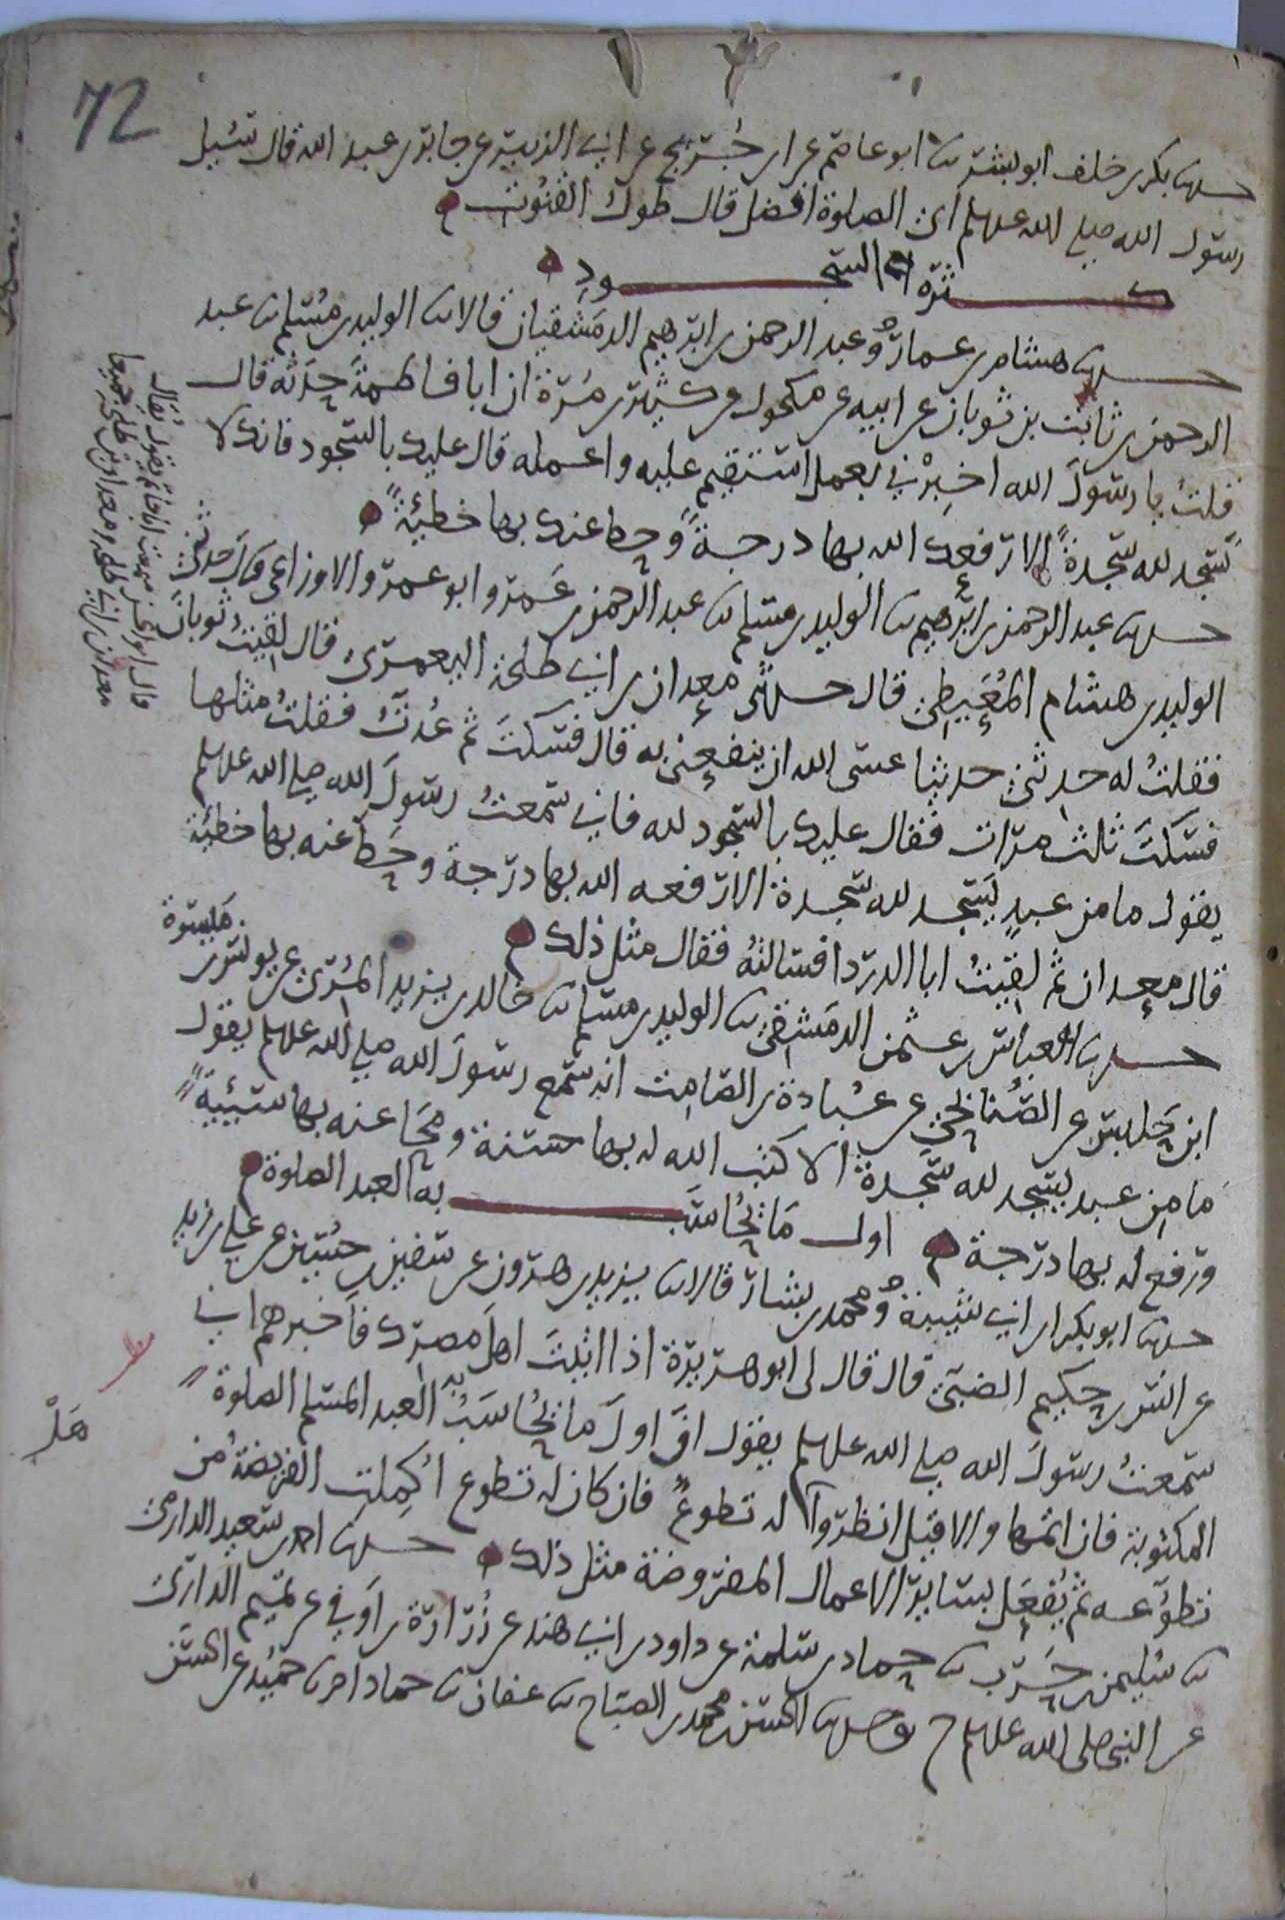 72
حدثنا بكر بن خلف ابو بشر ثنا ابو عاصم عن ابن جريج عن ابي الزبير عن جابر بن عبد الله قال سئل
رسول الله صلى الله عليه وسلم اي الصلوة افضل قال طول القنوت
كثرة السجود
حدثنا هشام بن عمار وعبد الرحمن بن ابرهيم الدمشقيان قالا ثنا الوليد بن مسلم ثنا عبد
الرحمن بن ثابت بن ثوبان عن ابيه عن مكحول عن كثير بن مرة ان ابا فاطمة حدثه قال
قلت يا رسول الله اخبرني بعمل استقيم عليه واعمله قال عليك بالسجود فانك لا
تسجد لله سجدة الا رفعك الله بها درجة وحط عنك بها خطيئة
حدثنا عبد الرحمن بن ابرهيم ثنا الوليد بن مسلم ثنا عبد الرحمن بن عمرو ابو عمرو الاوزاعي قال حدثني
الوليد بن هشام المعيطي قال حدثني معدان بن ابي طلحة اليعمري قال لقيت ثوبان
فقلت له حدثني حديثا عسى الله ان ينفعني به قال فسكت ثم عدت فقلت مثلها
فسكت ثلث مرات فقال عليك بالسجود لله فاني سمعت رسول الله صلى الله عليه وسلم
يقول ما من عبد يسجد لله سجدة الا رفعه الله بها درجة وحط عنه بها خطيئة
قال معدان ثم لقيت ابا الدردا فسالته فقال مثل ذلك
حدثنا العباس بن عثمن الدمشقي ثنا الوليد بن مسلم ثنا خالد بن يزيد المري عن يونس بن ميسرة
ابن حلبس عن الصنابحي عن عبادة بن الصامت انه سمع رسول الله صلى الله عليه وسلم يقول
ما من عبد يسجد لله سجدة الا كتب الله له بها حسنة ومحا عنه بها سيئة
ورفع له بها درجة اول ما يحاسب به العبد الصلوة
حدثنا ابو بكر بن ابي شيبة ومحمد بن بشار قالا ثنا يزيد بن هرون عن سفين بن حسين عن علي بن زيد
عن انس بن حكيم الضبي قال قال لي ابو هريرة اذا اتيت اهل مصرك فاخبرهم اني
سمعت رسول الله صلى الله عليه وسلم يقول ان اول ما يحاسب به العبد المسلم الصلوة
المكتوبة فان اتمها والا قيل انظروا له تطوع فان كان له تطوع اكملت الفريضة من
هل
تطوعه ثم يفعل بسائر الاعمال المفروضة مثل ذلك حدثنا احمد بن سعيد الدارمي
ثنا سليمن بن حرب ثنا حماد بن سلمة عن داود بن ابي هند عن زرارة بن اوفى عن تميم الداري
عن النبي صلى الله عليه وسلم ح وحدثنا الحسن بن محمد بن الصباح ثنا عفان ثنا حماد انا حميد عن الحسن